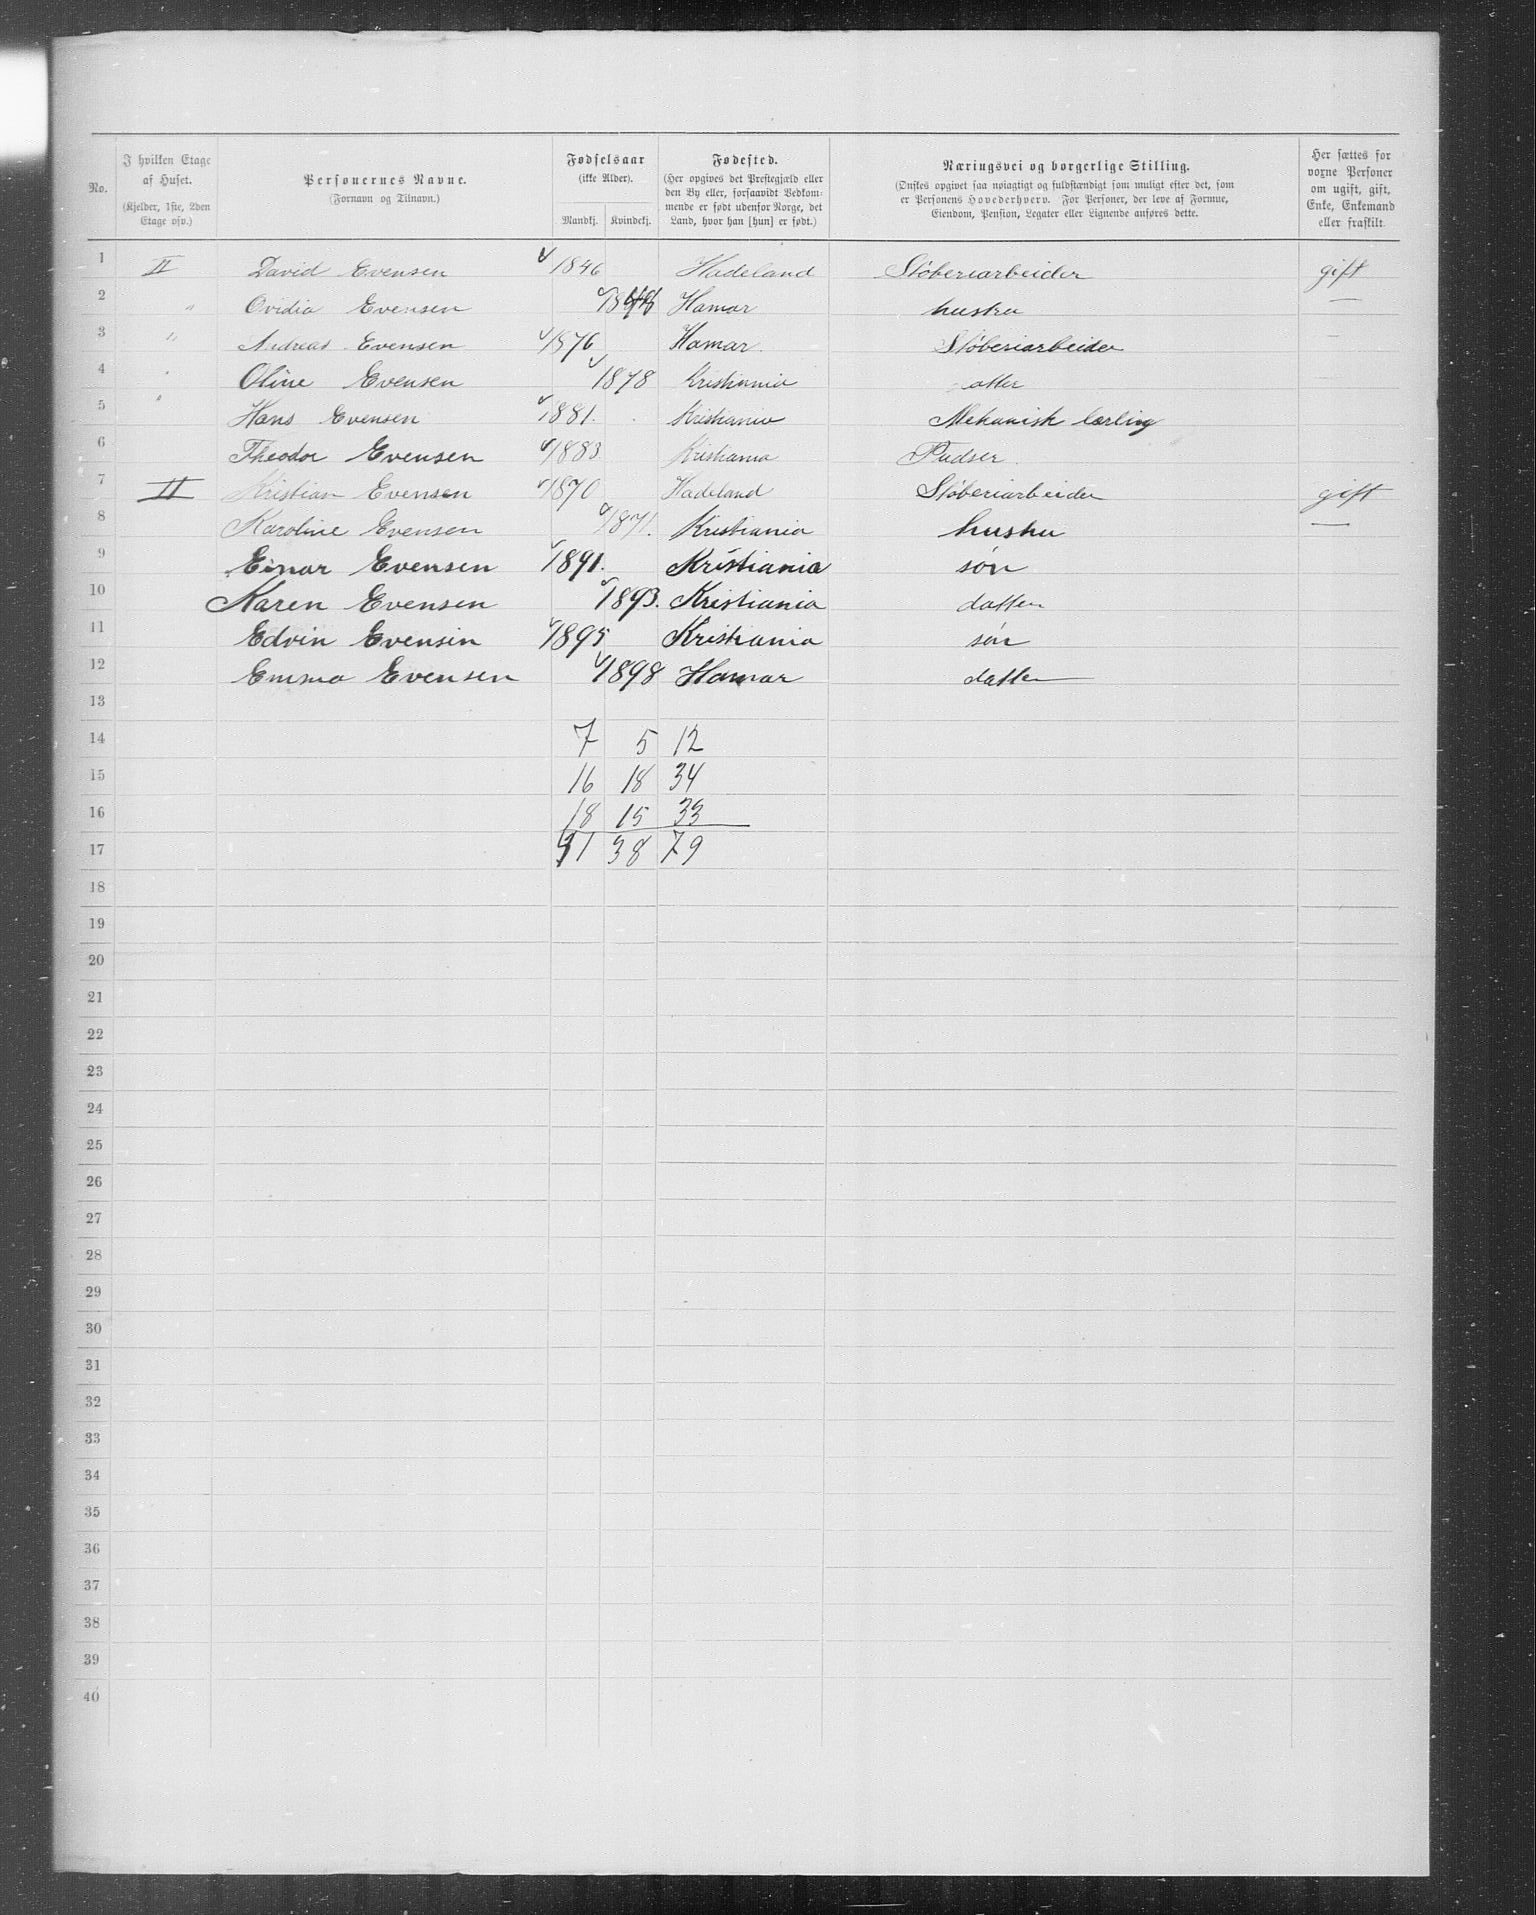 No. | I hvilken Etage af Huset. (Kjelder, 1ste, 2den Etage osv.) | Personernes Navne. (Fornavn og Tilnavn.) | Fødselsaar (ikke Alder). Mandkj. | Kvindekj. | Fødested. (Her opgives det Prestegjæld eller den By eller, forsaavidt Vedkommende er født udenfor Norge, det Land, hvor han [hun] er født.) | Næringsvei og borgerlige Stilling. (Ønskes opgivet saa nøiagtigt og fuldstændigt som muligt efter det, som er Personens Hovederhverv. For Personer, der leve af Formue, Eiendom, Pension, Legater eller Lignende anføres dette. | Her sættes for voxne Personer om ugift, gift, Enke, Enkemand eller fraskilt.
1 II David Evensen 1846 Hadeland Støberiarbeider gift
2 " Ovidia Evensen Hamar hustru —
3 " Andreas Evensen 1876 Hamar. Støberiarbeider —
4 " Oline Evensen 1878 Kristiania
5 " Hans Evensen 1881. Kristiania Mekanisk lærling
6 Theodor Evensen 1883 Kristiania Pudser.
7 II Kristian Evensen 1870 Hadeland Støberiarbeider gift
8 Karoline Evensen 1871. Kristiania hustru —
9 Einar Evensen 1891. Kristiania søn
10 Karen Evensen 1893. Kristiania datter
11 Edvin Evensin 1895 Kristiania søn
12 Emma Evensen 1898 Hamar datter
13
14 7 5 12
15 16 18 34
16 18 15 33
17 41 38 79
18
19
20
21
22
23
24
25
26
27
28
29
30
31
32
33
34
35
36
37
38
39
40